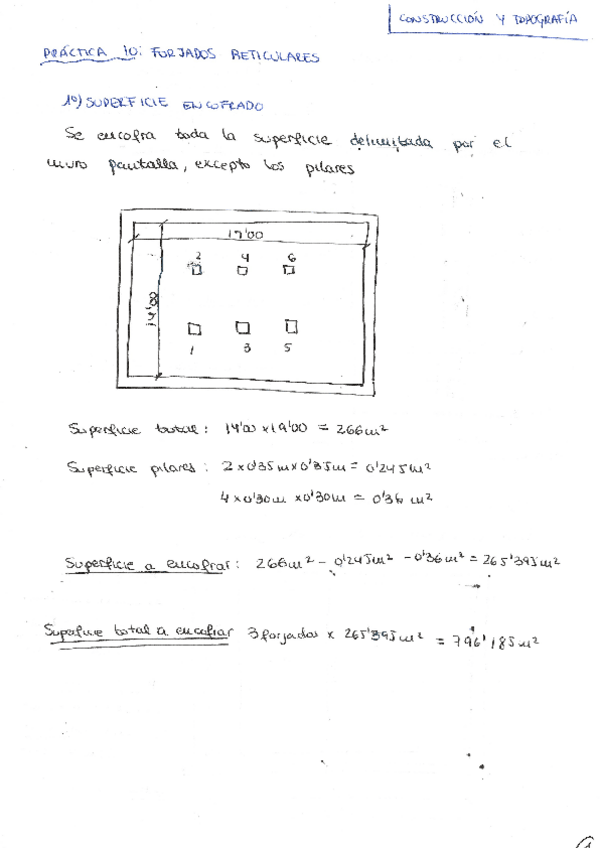 CONSTRUCCIÓN Y TOPOGRAFÍA
PRÁCTICA 10: FORJADOS RETICULARES
1º) SUPERFICIE ENCOFRADO
Se encofra toda la superficie delimitada por el
muro pantalla, excepto los pilares
19'00
2 4 6
14'00
1 3 5
Superficie total: 14'00 x 19'00 = 266 m²
Superficie pilares: 2 x 0'35 m x 0'35 m = 0'245 m²
4 x 0'30 m x 0'30 m = 0'36 m²
Superficie a encofrar: 266 m² - 0'245 m² - 0'36 m² = 265'395 m²
Superficie total a encofrar 3 forjados x 265'395 m² = 796'185 m²